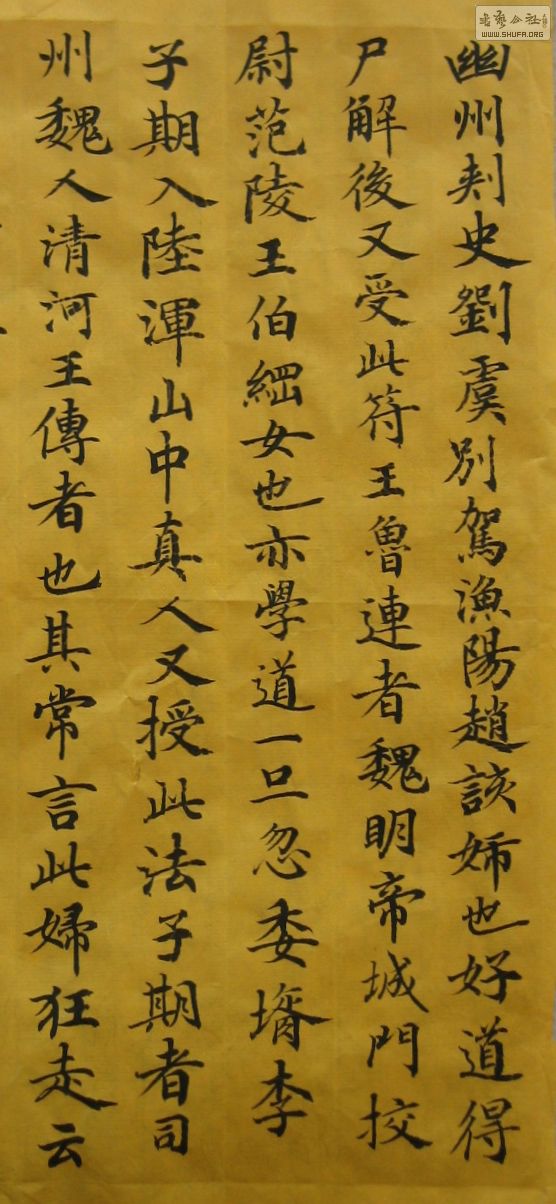 幽州刾史劉虞別駕漁陽趙該姊也好道得
尸解後又受此符王魯連者魏明帝城門挍
尉范陵王伯綱女也亦學道一旦忽委壻李
子期入陸渾山中真人又授此法子期者司
州魏人清河王傳者也其常言此婦狂走云
書藝公社
WWW.SHUFA.ORG